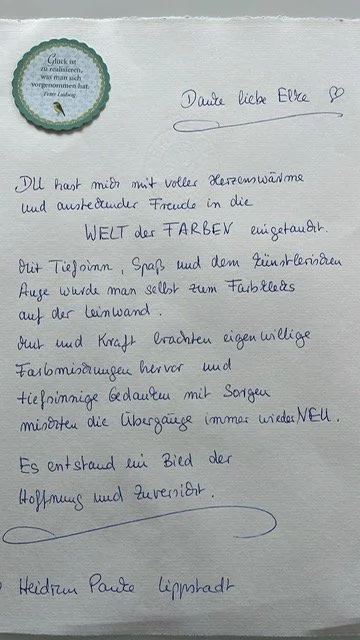 Glück ist
zu realisieren,
was man sich
vorgenommen hat.
Peter Ludwig
Danke liebe Elke ♡
DU hast mich mit voller Herzenswärme
und ansteckender Freude in die
WELT der FARBEN eingetaucht.
Mit Tiefsinn, Spaß und dem künstlerischen
Auge wurde man selbst zum Farbklecks
auf der Leinwand.
Mut und Kraft brachten eigenwillige
Farbmischungen hervor und
tiefsinnige Gedanken mit Sorgen
mischten die Übergänge immer wieder NEU.
Es entstand ein Bild der
Hoffnung und Zuversicht.
Heidrun Panke Lippstadt